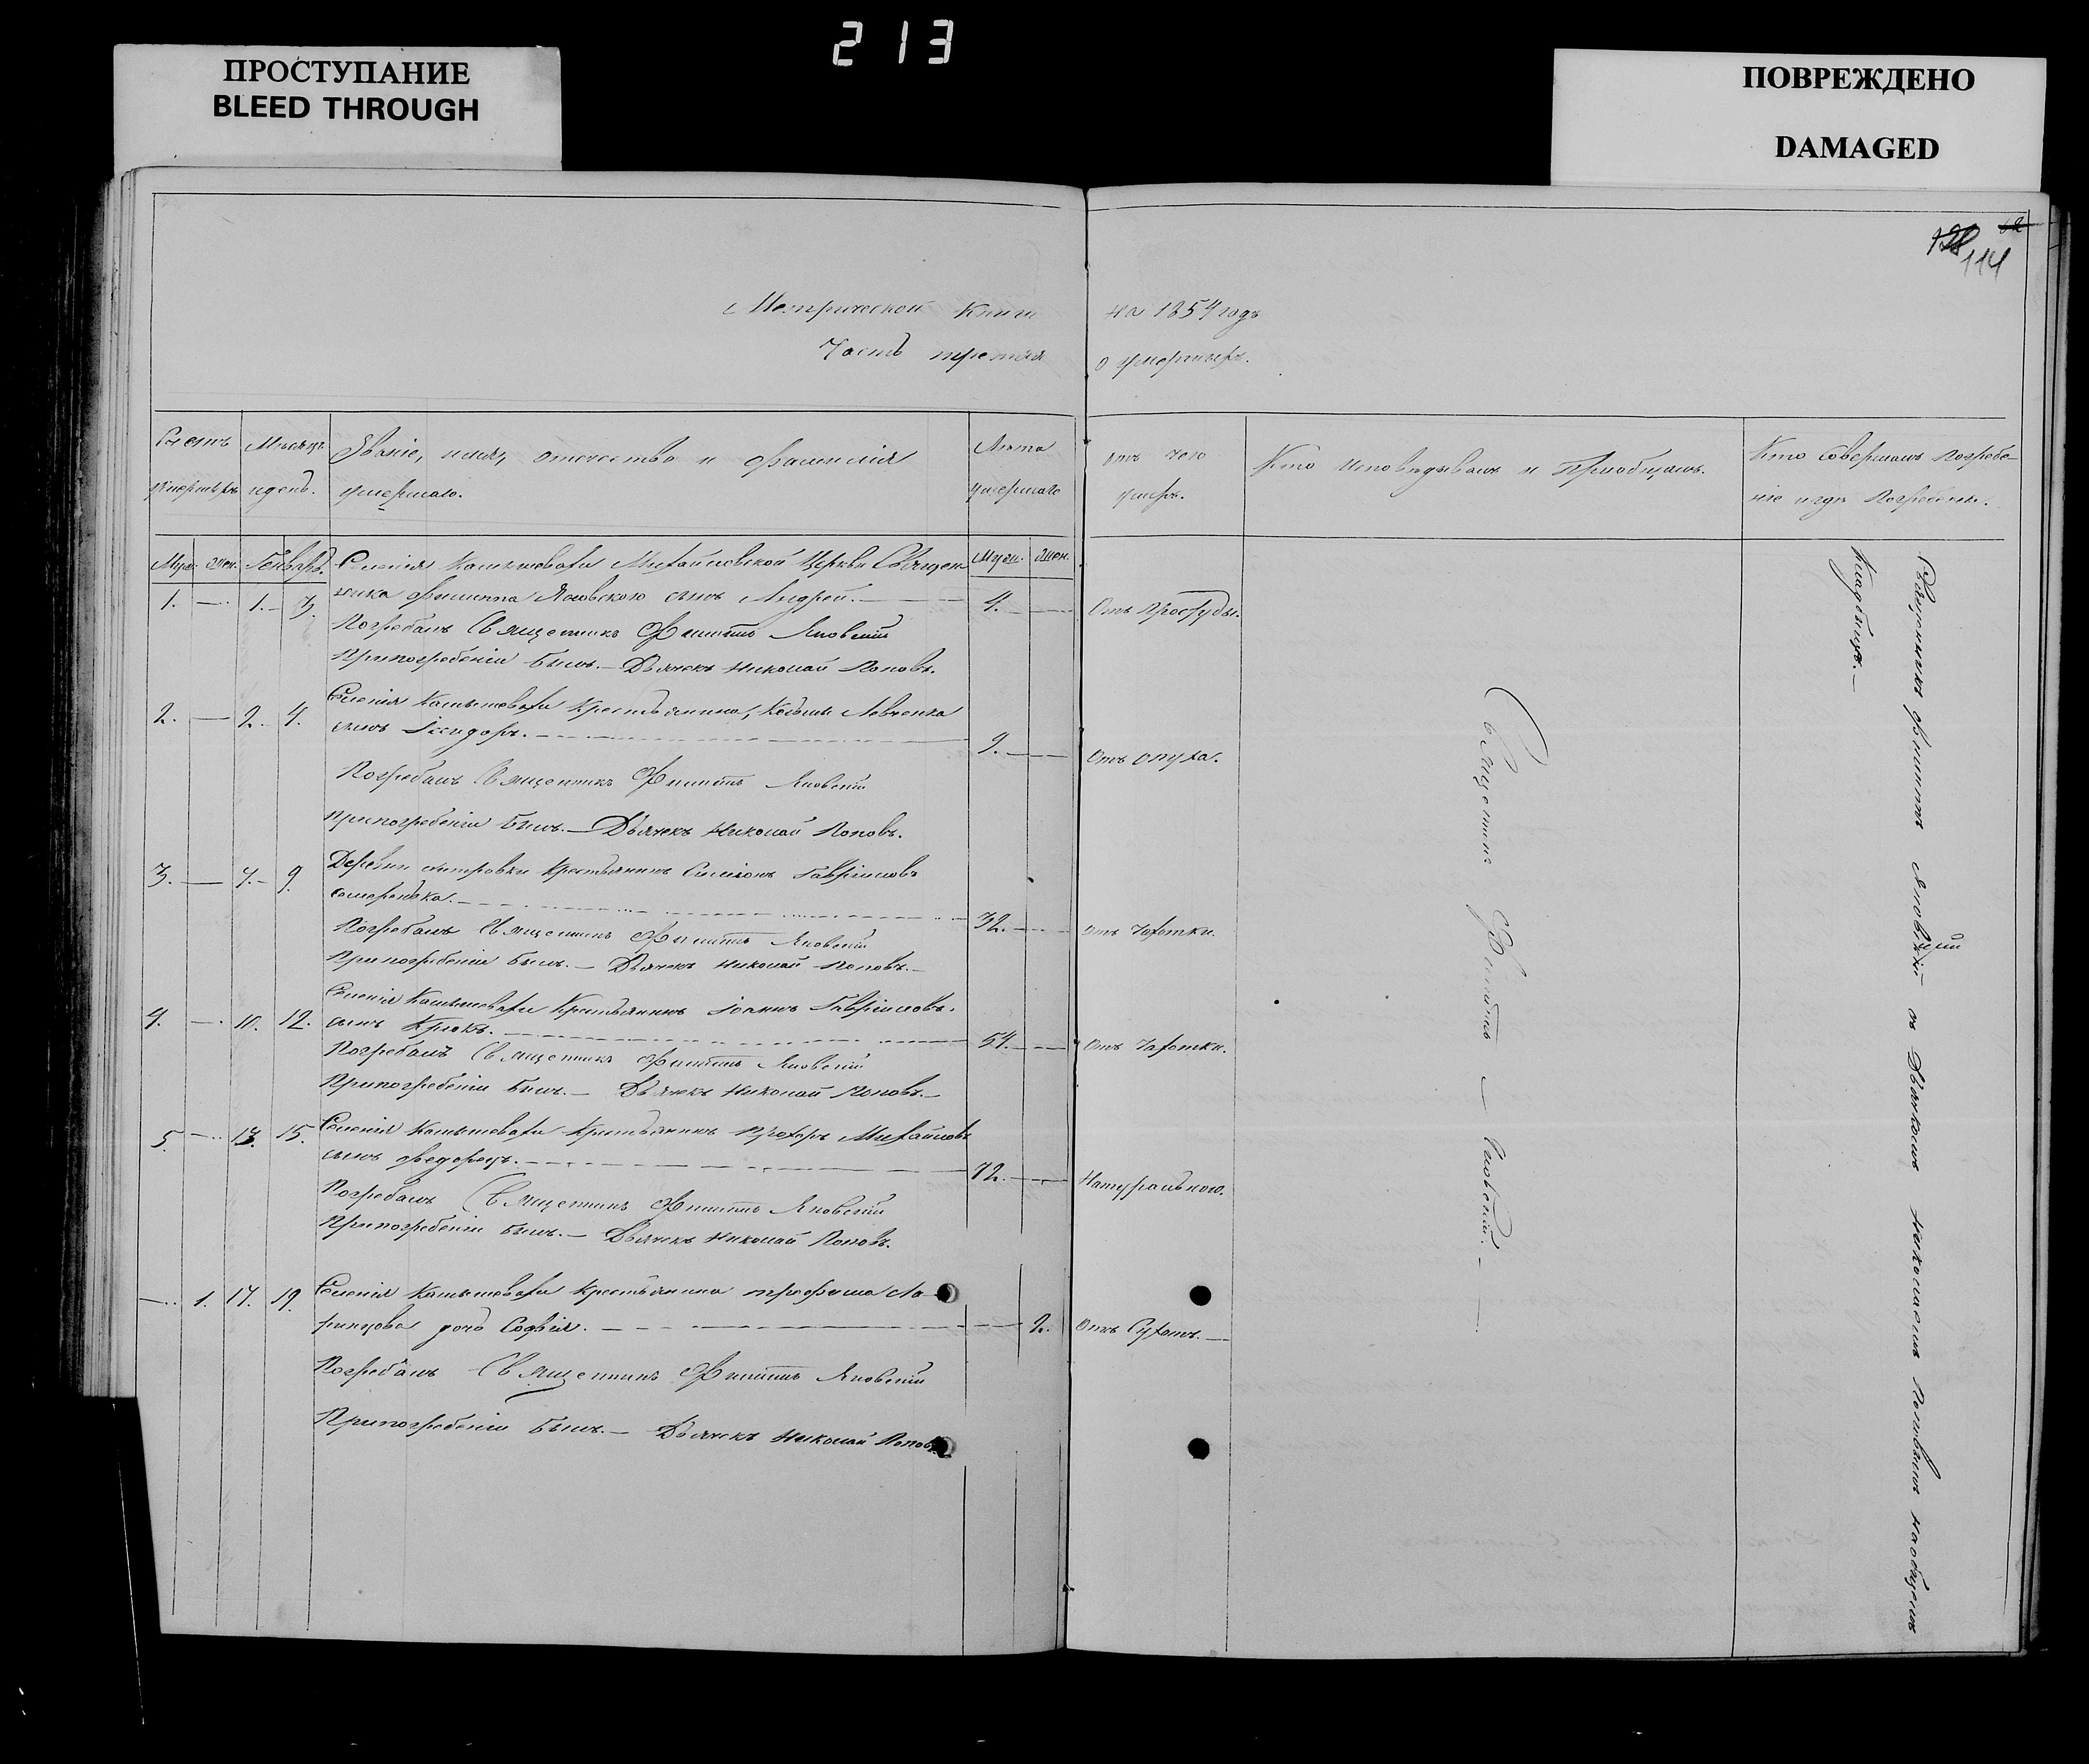 213
ПРОСТУПАНИЕ
BLEED THROUGH
ПОВРЕЖДЕНО
DAMAGED
114
Метрической Книги на 1854 годъ
Часть третая о умершихъ.
Счетъ умершихъ
Месяцъ и день.
Званіе, имя, отчество и фамилія умершаго.
Лета умершаго
отъ чего умеръ.
Кто исповѣдывалъ и Приобщалъ.
Кто совершалъ Погребеніе и гдѣ Погребены.
Муж. Жен. Генварь. Селенія Камышевахи Михайловской Церкви Священ- Муж. Жен.
1. — 1. 3. ника Филиппа Яновскаго сынъ Андрей. — 4. — Отъ простуды.
Погребалъ Священникъ Филиппъ Яновскій
При погребеніи былъ. — Дьячекъ Николай Поповъ.
Селенія Камышевахи Крестьянина, Левченка
2. — 2. 4. сынъ Ісидоръ. — 9. — Отъ опуха.
Погребалъ Священникъ Филиппъ Яновскій
При погребеніи былъ. — Дьячекъ Николай Поповъ.
3. — 7. 9. Деревни Крестьянинъ Симеонъ Гавриловъ
32. — отъ Чахотки.
Погребалъ Священникъ Филиппъ Яновскій
При погребеніи былъ. — Дьячекъ Николай Поповъ. —
Селенія Камышевахи Крестьянинъ Іоаннъ Гавриловъ
4. — 10. 12. сынъ Крюкъ. — 54. — Отъ Чахотки.
Погребалъ Священникъ Филиппъ Яновскій
При погребеніи былъ. — Дьячекъ Николай Поповъ. —
5. — 13. 15. Селенія Камышевахи Крестьянинъ Прохоръ Михайловъ
сынъ Федорецъ. — 72. — Натуральною.
Погребалъ Священникъ Филиппъ Яновскій
При погребеніи былъ. — Дьячекъ Николай Поповъ.
— 1. 17. 19. Селенія Камышевахи Крестьянина Трофима Ла-
ринцова дочь Софія. — 2. Отъ Сухотъ. —
Погребалъ Священникъ Филиппъ Яновскій
При погребеніи былъ. — Дьячекъ Николай Поповъ.
Священникъ Филиппъ Яновскій. —
Священникъ Филиппъ Яновскій съ Дьячкомъ Николаемъ Поповымъ на общемъ
Кладбищѣ. —